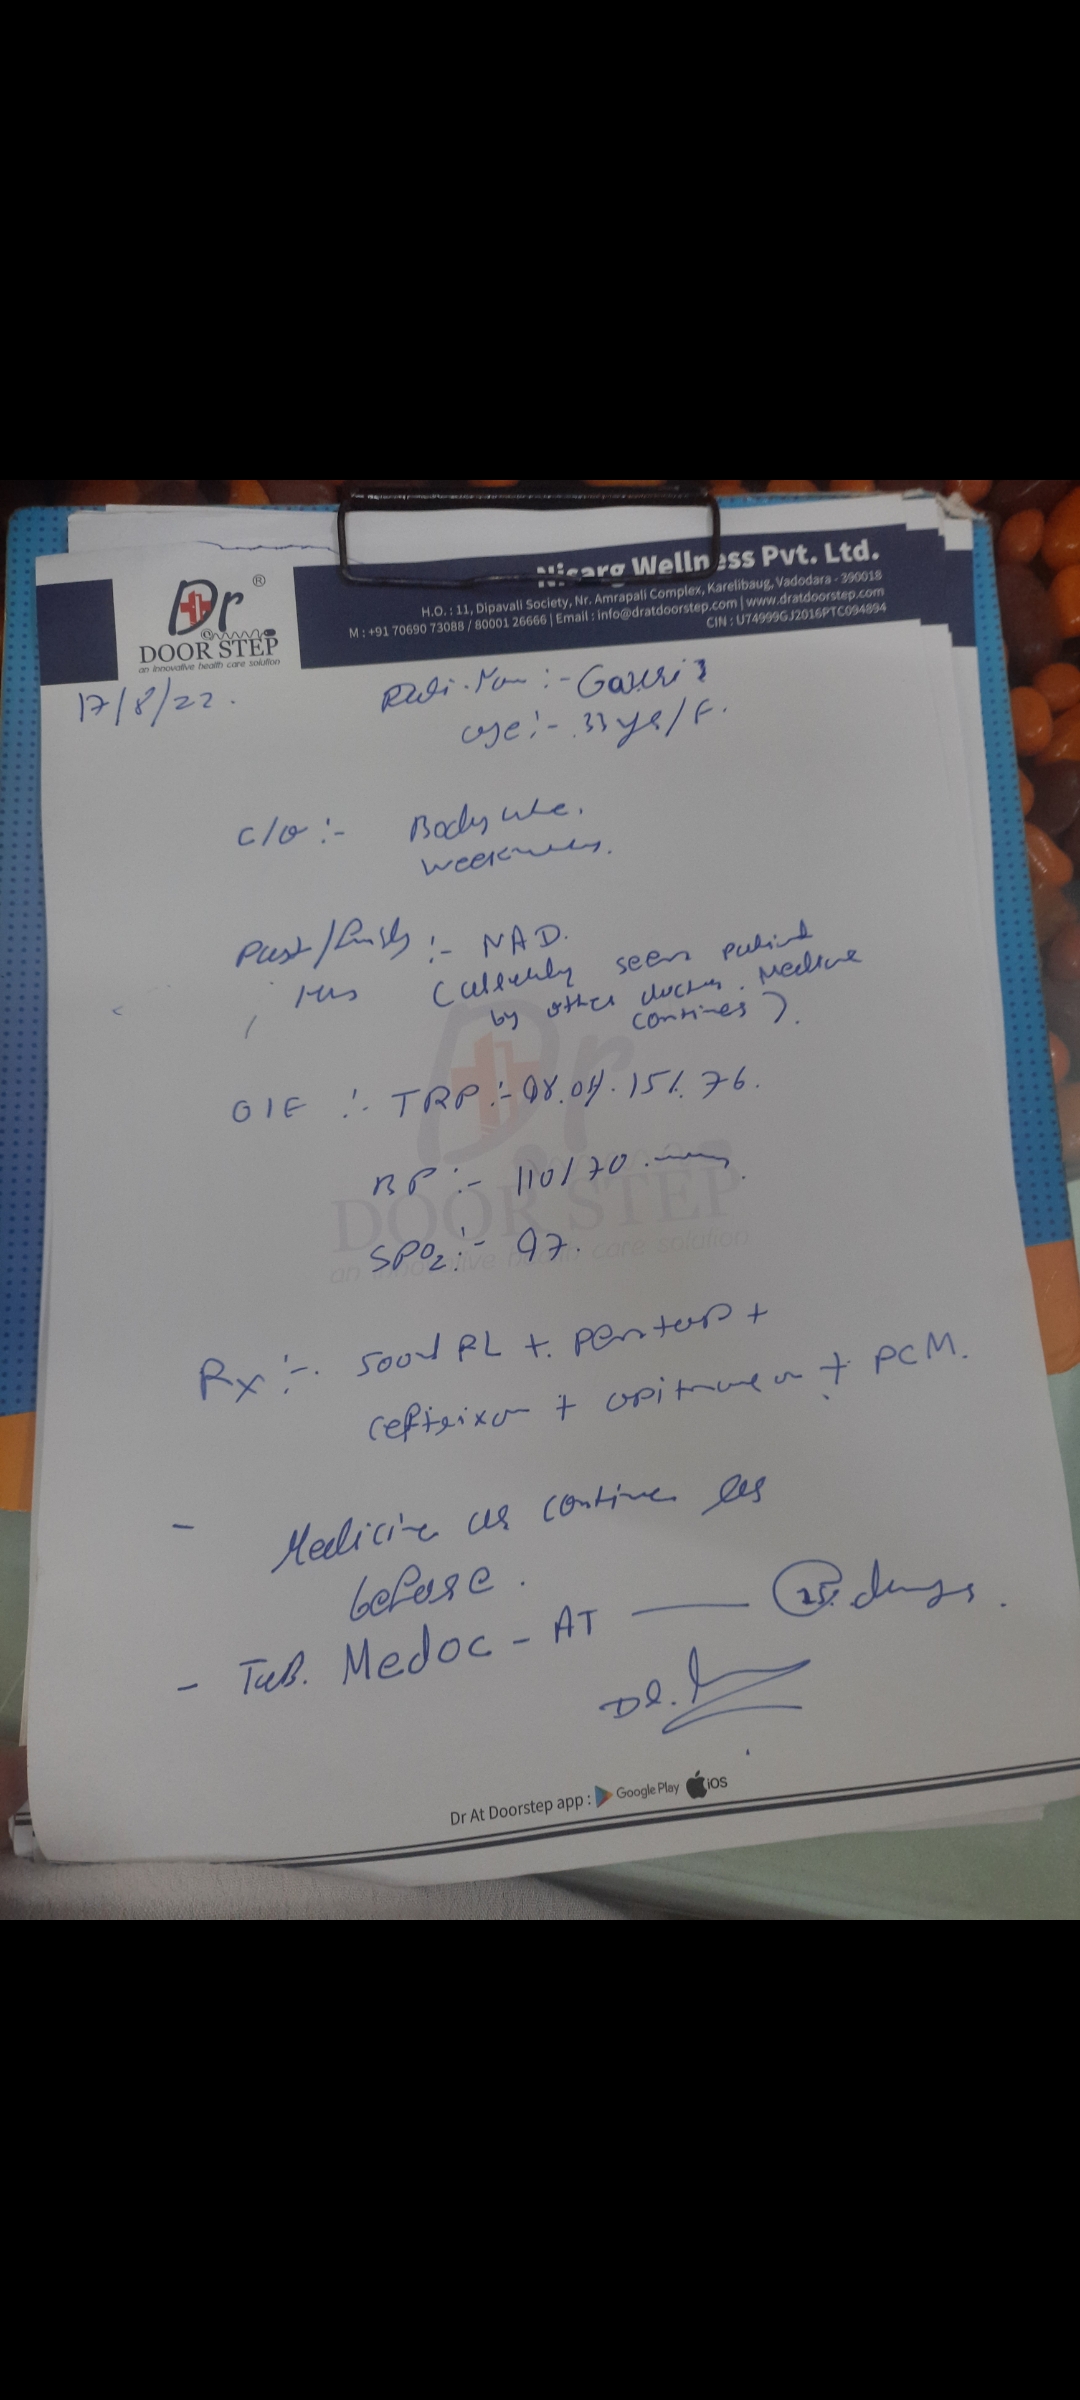 Dr ®
DOOR STEP
an innovative health care solution
Nisarg Wellness Pvt. Ltd.
H.O. : 11, Dipavali Society, Nr. Amrapali Complex, Karelibaug, Vadodara - 390018
M : +91 70690 73088 / 80001 26666 | Email : info@dratdoorstep.com | www.dratdoorstep.com
CIN : U74999GJ2016PTC094894
17/8/22.
age :- 33 yrs/F.
C/O :- Body
weakness.
Past / :- NAD.
His ( seen patient
by other doctor. Medicine
continues ).
O/E :- TRP :- 76.
BP :- 110/70
SPO2 :- 97.
Dr
DOOR STEP
an innovative health care solution
Rx :- 500 RL + pentop +
+ + PCM.
- Medicine as continue as
before.
- Tab. Medoc - AT — days.
Dr.
Dr At Doorstep app : Google Play iOS